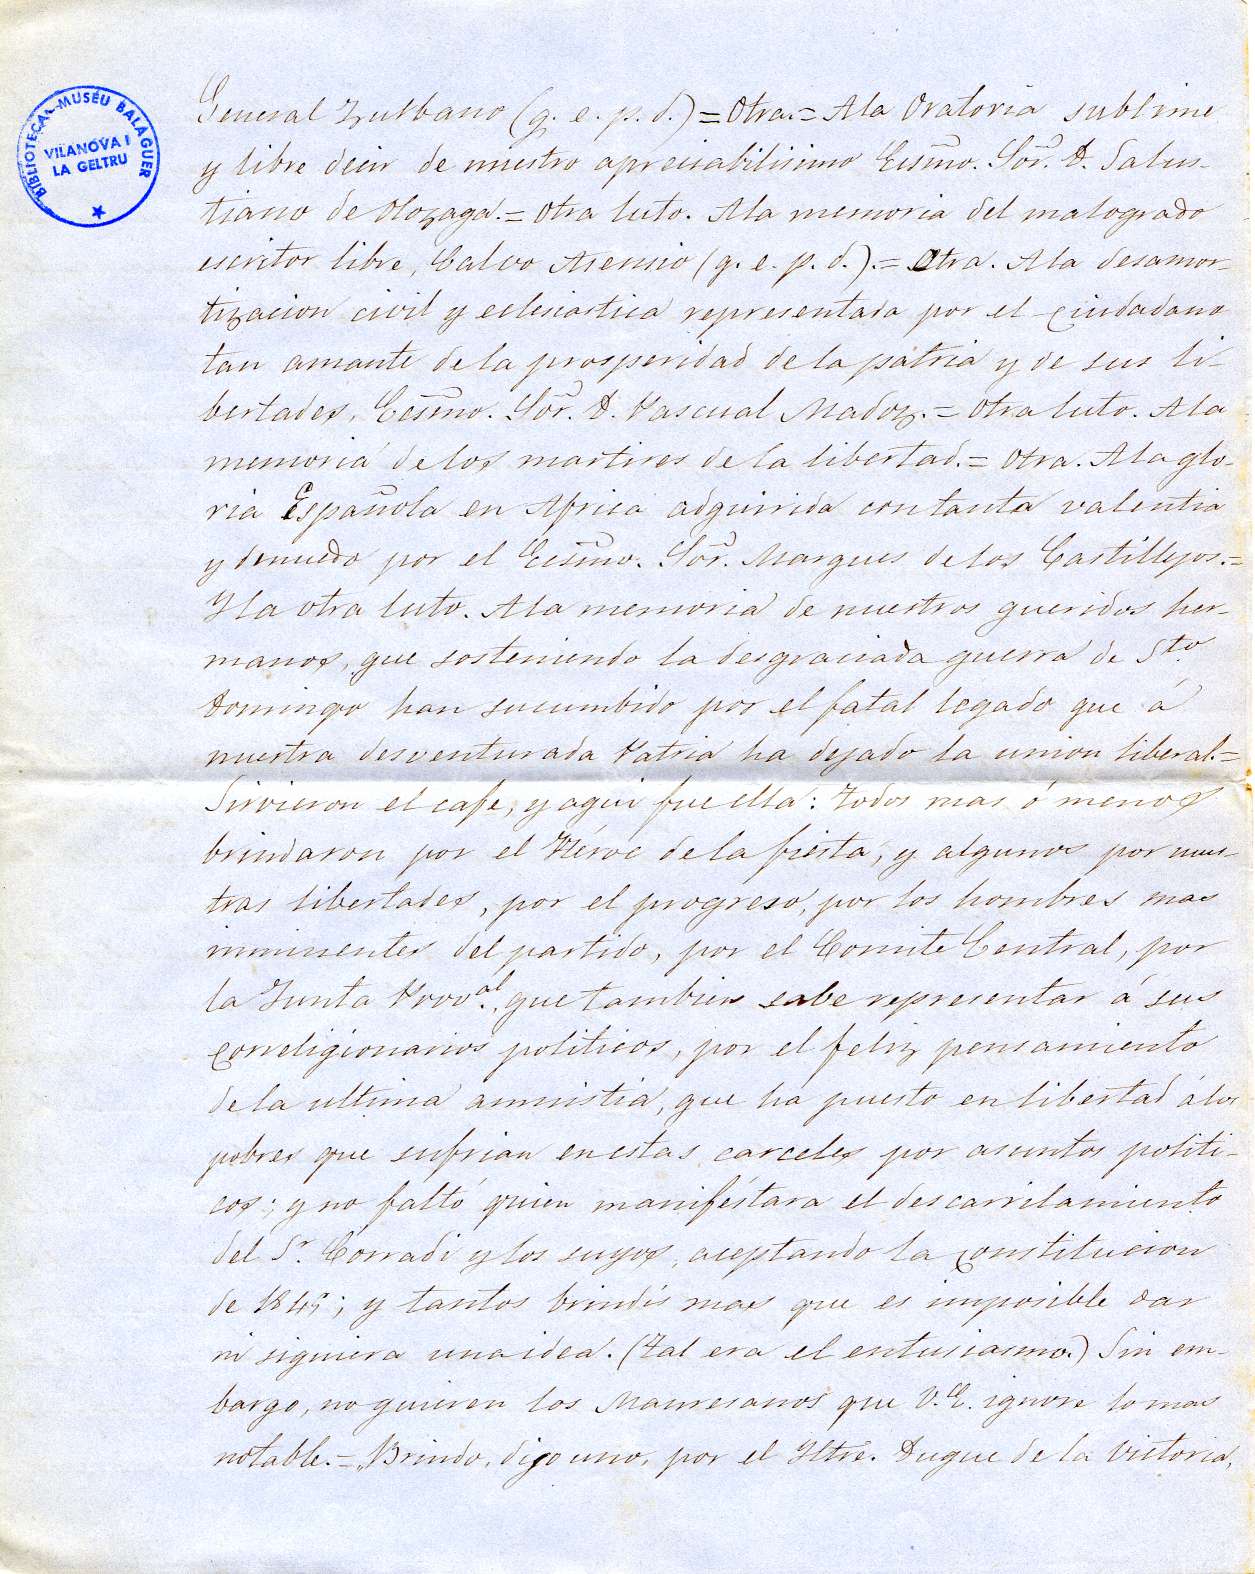 BIBLIOTECA-MUSEU BALAGUER
VILANOVA I
LA GELTRU
General Zurbano (q. e. p. d.) = Otra. = A la Oratoria sublime
y libre decir de nuestro apreciabilisimo Ecsmo. Sor. D. Salus-
tiano de Olozaga. = Otra luto. A la memoria del malogrado
escritor libre, Calvo Asensio (q. e. p. d.). = Otra. A la desamor-
tizacion civil y eclesiastica representada por el ciudadano
tan amante de la prosperidad de la patria y de sus li-
bertades, Ecsmo. Sor. D. Pascual Madoz. = Otra luto. A la
memoria de los martires de la libertad. = Otra. A la glo-
ria Española en Africa adquirida con tanta valentia
y denuedo por el Ecsmo. Sor. Marques de los Castillejos. =
Y la otra luto. A la memoria de nuestros queridos her-
manos, que sosteniendo la desgraciada guerra de Sto.
Domingo han sucumbido por el fatal legado que á
nuestra desventurada Patria ha dejado la union liberal. =
Sirvieron el cafe, y aqui fue ella: todos mas ó menos
brindaron por el Héroe de la fiesta, y algunos por nues-
tras libertades, por el progreso, por los hombres mas
imminentes del partido, por el Comite Central, por
la Junta Proval. que tambien sabe representar á sus
correligionarios politicos, por el feliz pensamiento
de la ultima amnistia, que ha puesto en libertad á los
pobres que sufrian en estas carceles por asuntos politi-
cos; y no faltó quien manifestara el descarrilamiento
del Sr. Corradi y los suyos, aceptando la constitucion
de 1845; y tantos brindis mas que es imposible dar
ni siquiera una idea. (Tal era el entusiasmo.) Sin em-
bargo, no quieren los Manresanos que V.E. ignore lo mas
notable. = "Brindo, dijo uno, por el Iltre. Duque de la Victoria,